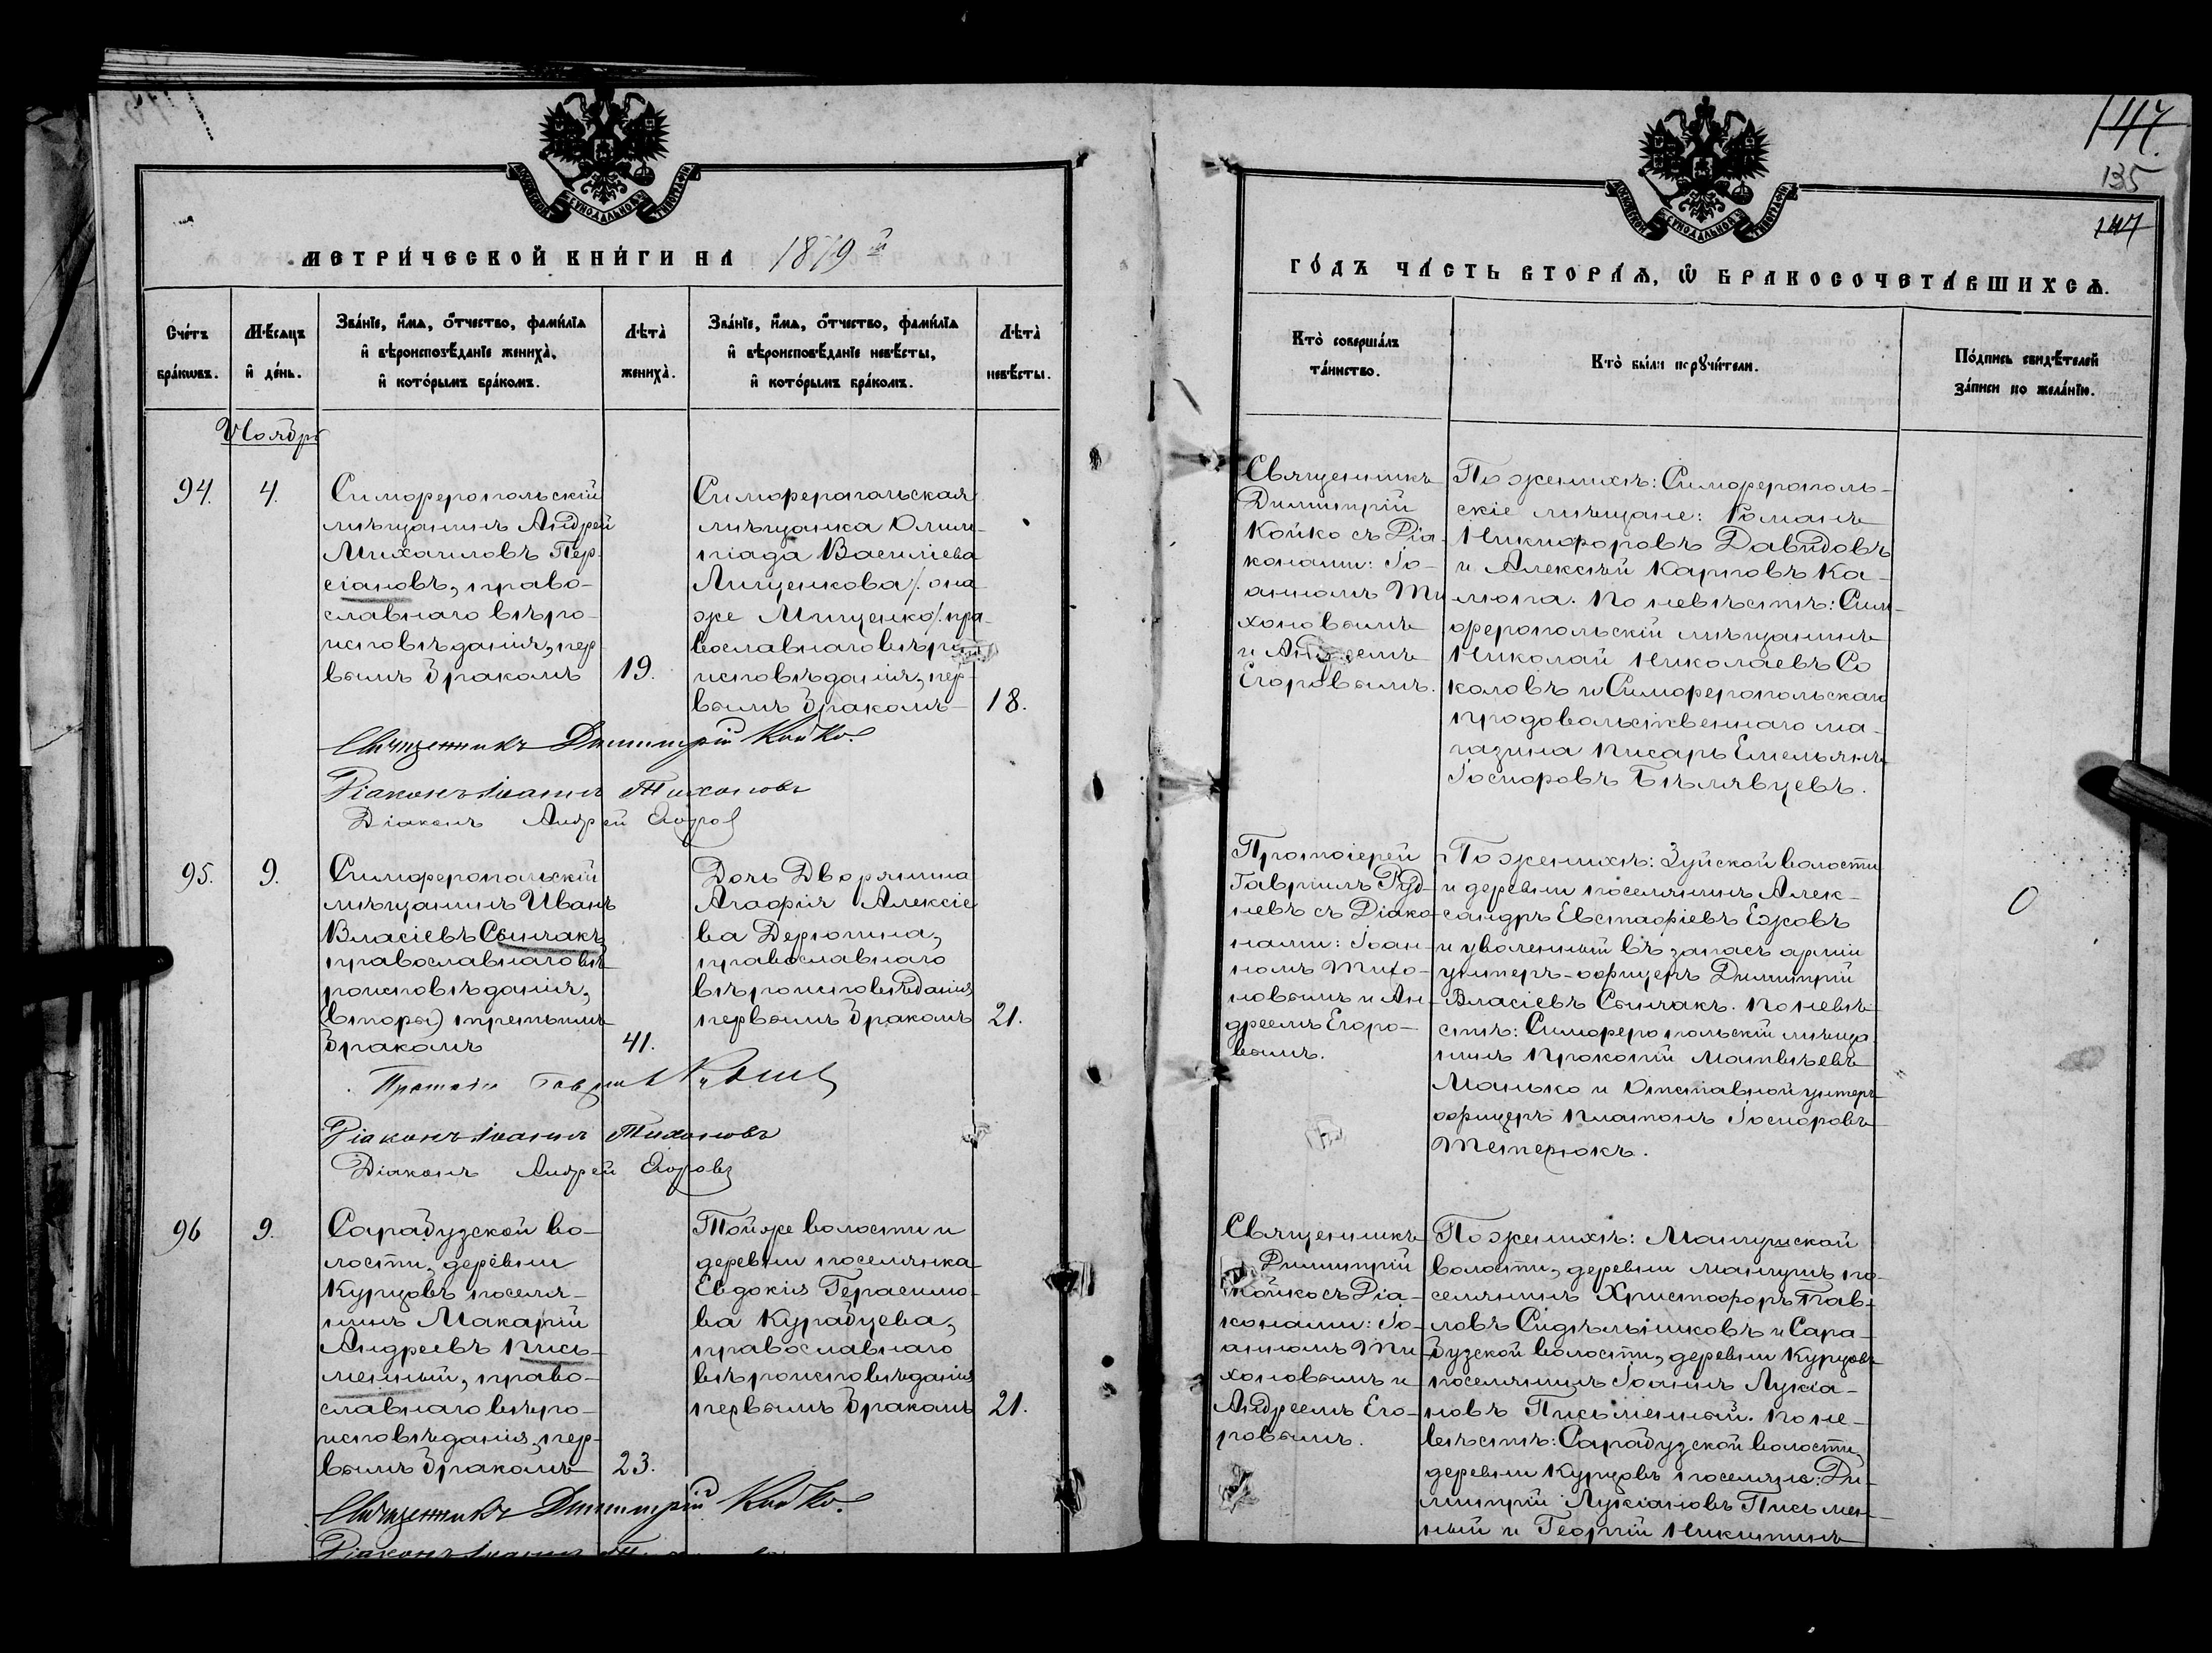 147
135
147
МЕТРИ́ЧЕСКОЙ КНИ́ГИ НА 1879й
ГО́ДЪ ЧА́СТЬ ВТОРА́Ѧ, Ѿ БРАКОСОЧЕТА́ВШИХСѦ.
Сче́тъ бра́кѡвъ.
Мѣ́сѧцъ и҆ де́нь.
Зва́нїе, и҆́мѧ, ѻ҆́тчество, фами́лїа
и҆ вѣроисповѣ́данїе жениха̀,
и҆ кото́рымъ бра́комъ.
Лѣта̀ жениха̀.
Зва́нїе, и҆́мѧ, ѻ҆́тчество, фами́лїа
и҆ вѣроисповѣ́данїе невѣ́сты,
и҆ кото́рымъ бра́комъ.
Лѣта̀ невѣ́сты.
Кто̀ соверша́лъ
та́инство.
Кто̀ бы́ли порꙋчи́тели.
По́дпись свидѣ́телей
за́писи по жела́нїю.
Ноябрь
94.
4.
Симферопольскій
мѣщанинъ Андрей
Михаиловъ Пер-
сіановъ, право-
славнаго вѣро-
исповѣданія, пер-
вымъ бракомъ
19.
Симферопольская
мѣщанка Олим-
піада Василіева
Лищенкова /. она
же Мищенко /. пра-
вославнаго вѣро-
исповѣданія, пер-
вымъ бракомъ
18.
Священникъ Димитрій Койко.
Діаконъ Іоаннъ Тихоновъ
Діаконъ Андрей Егоров
Священникъ
Димитрій
Койко съ Діа-
конами: Іо-
анномъ Ти-
хоновымъ
и Андреемъ
Егоровымъ.
По женихѣ: Симферополь-
скіе мѣщане: Романъ
Никифоровъ Давидовъ
и Алексѣй Карповъ Ка-
люпа. По невѣстѣ: Сим-
феропольскій мѣщанинъ
Николай Николаевъ Со
коловъ и Симферопольскаго
продовольственнаго ма-
газина писарь Емельянъ
Іосифовъ Бѣлявцевъ.
95.
9.
Симферопольскій
мѣщанинъ Иванъ
Власіевъ Сынчакъ,
православнаго вѣ-
роисповѣданія,
(вторы) третьимъ
бракомъ
41.
Дочь Дворянина
Агафія Алексіе
ва Дерюгина,
православнаго
вѣроисповѣданія
первымъ бракомъ
21.
Діаконъ Іоаннъ Тихоновъ
Діаконъ Андрей Егоровъ
Протоіерей
Гавріилъ Руд-
невъ съ Діако-
нами: Іоан-
номъ Тихо-
новымъ и Ан-
дреемъ Егоро-
вымъ.
По женихѣ: Зуйской волости
и деревни поселянинъ Алек-
сандръ Евстафіевъ Ежовъ
и уволенный въ запасъ арміи
унтеръ-офицеръ Димитрій
Власіевъ Сынчакъ. По невѣ-
стѣ: Симферопольскій мѣща-
нинъ Прокопій Матвѣевъ
Манько и Отставной унтеръ-
офицеръ Платонъ Іосифовъ
Тетерюкъ.
96
9.
Сарабузской во-
лости, деревни
Курцовъ поселя-
нинъ Макарій
Андреевъ Пись-
менный, право-
славнаго вѣро-
исповѣданія, пер-
вымъ бракомъ
23.
Той же волости и
деревни поселянка
Евдокія Герасимо-
ва Курабцева,
православнаго
вѣроисповѣданія
первымъ бракомъ
21.
Священникъ Димитрій Койко.
Діаконъ Іоаннъ
Священникъ
Димитрій
Койко съ Діа-
конами: Іо-
анномъ Ти-
хоновымъ и
Андреемъ Его-
ровымъ.
По женихѣ: Мангушской
волости, деревни Мангушъ по-
селянинъ Христофоръ Пав-
ловъ Сидѣльниковъ и Сара-
бузской волости, деревни Курцовъ
поселянинъ Іоаннъ Лукіа-
новъ Письменный. По не-
вѣстѣ: Сарабузской волости,
деревни Курцовъ поселяне: Ди-
митрій Лукіановъ Письмен-
ный и Георгій Никитинъ